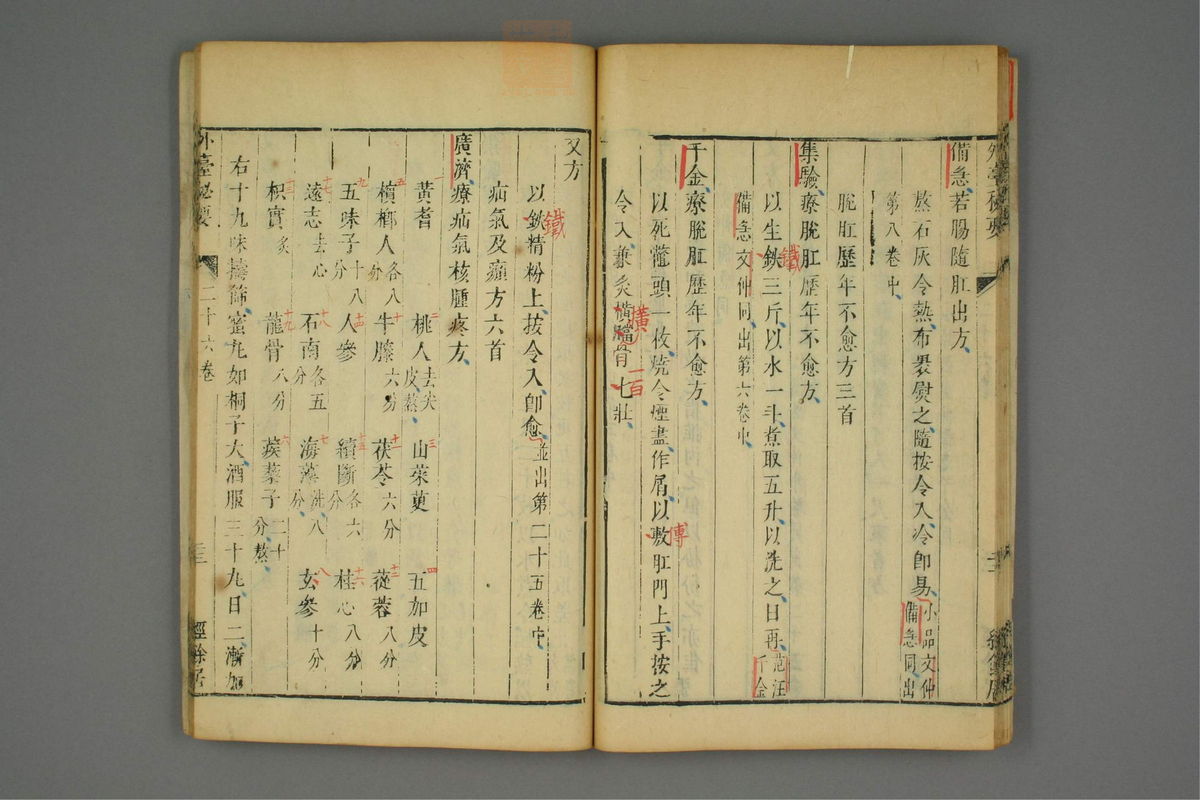 備急若腸隨肛出方
熬石灰令熱布裹熨之隨按令入冷即易小品文仲備急同出
第八卷中
脫肛歷年不愈方三首
集驗療脫肛歷年不愈方
以生鉄三斤以水一斗煮取五升以洗之日再范汪千金
鐵
備急文仲同出第六卷中
千金療脫肛歷年不愈方
以死鼈頭一枚燒令煙盡作屑以敷肛門上手按之
傅
令入兼灸橫骨七壯
一百
又方
以鉄精粉上按令入即愈並出第二十五卷中
鐵
疝氣及㿗方六首
廣濟療疝氣核腫疼方
黃耆 桃人去尖皮熬 山茱萸 五加皮
一 二 三 四
檳榔人各八分 牛膝六分 茯苓六分 蓯蓉八分
五 十 十一 十二
五味子十八分 人參 續斷各六分 桂心八分
九 十四 十五 十六
遠志去心 石南各五分 海藻洗八分 玄參十分
十七 十八 七 八
枳實炙 龍骨八分 蒺藜子二十分熬
十三 十九 六
右十九味擣篩蜜丸如桐子大酒服三十丸日二漸加
外臺秘要 二十六卷 經餘居